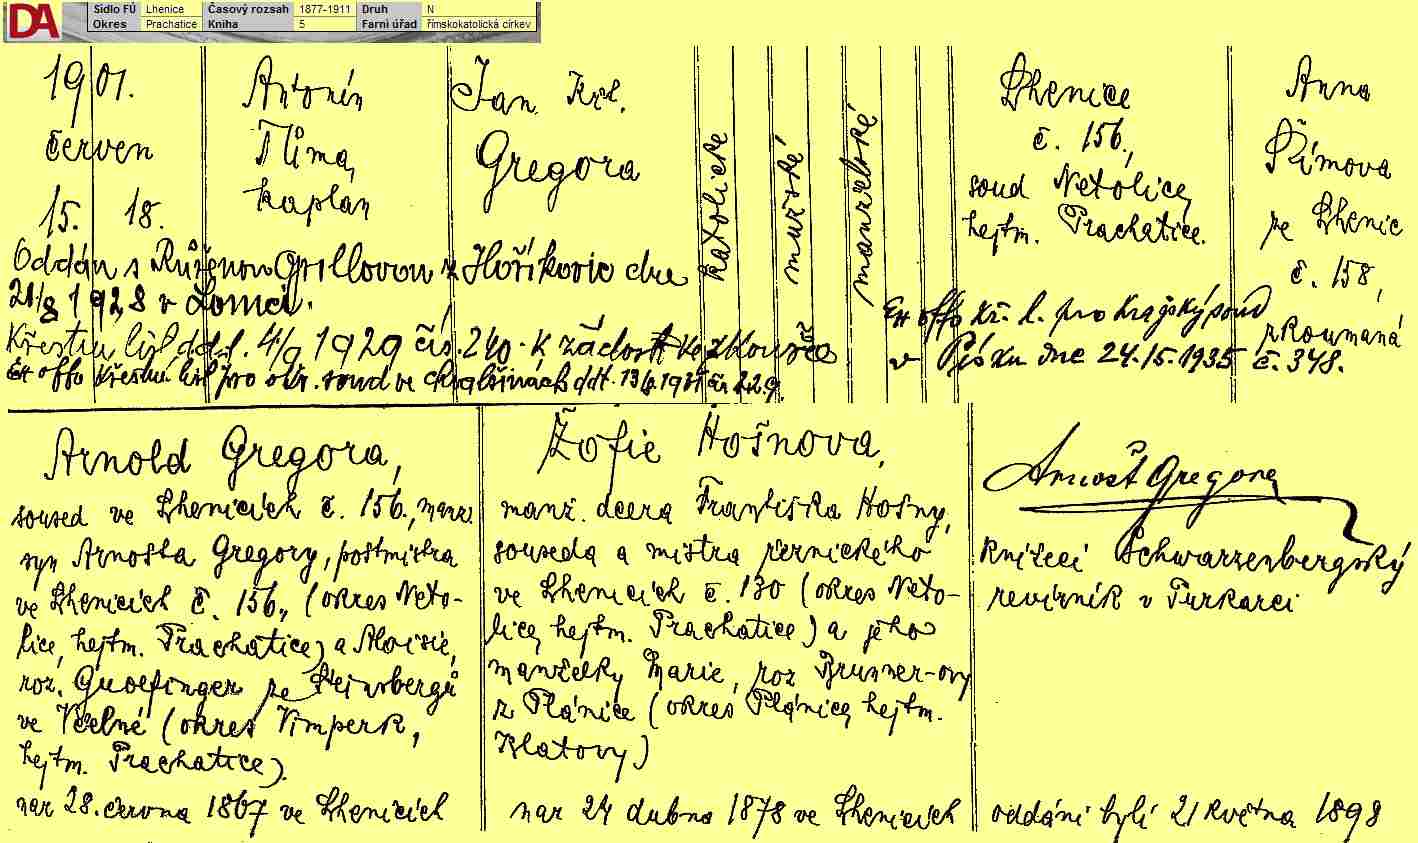 DA
Sídlo FÚ Lhenice Časový rozsah 1877-1911 Druh N
Okres Prachatice Kniha 5 Farní úřad římskokatolická církev
1901.
červen
15. 18.
Antonín
Tůma,
kaplan
Jan. Křt.
Gregora
katolické
mužské
manželské
Lhenice
č. 156.,
soud Netolice,
hejtm. Prachatice.
Anna
Přímova
ze Lhenic
č. 158,
zkoumaná
č. 348.
Oddán s Růženou z Hoříkovic dne
21/8 1928 v Lomci.
Křestní list ddt. 4/9 1929 čís. 240. k žádosti ke zkoušce
Ex offo křestní list pro okr. soud ve ddt. čís 229.
Ex offo kř. l. pro krajský soud
v Písku dne 24.15.1935
Arnold Gregora,
soused ve Lhenicích č. 156., manž.
syn Arnošta Gregory, poštmistra
ve Lhenicích č. 156., (okres Neto-
lice, hejtm. Prachatice) a Aloisie,
roz. ze Šteinsbergů
ve Včelné (okres Vimperk,
hejtm. Prachatice).
nar 28. června 1867 ve Lhenicích
Žofie Hošnova,
manž. dcera Františka Hošny,
souseda a mistra řeznického
ve Lhenicích č. 130 (okres Neto-
lice, hejtm. Prachatice) a jeho
manželky Marie, roz Brunner-ovy
z Plánice (okres Plánice, hejtm.
Klatovy)
nar 24 dubna 1878 ve Lhenicích
Arnošt Gregora
knížecí Schwarzenbergský
revírník v Purkarci
oddáni byli 21 května 1898